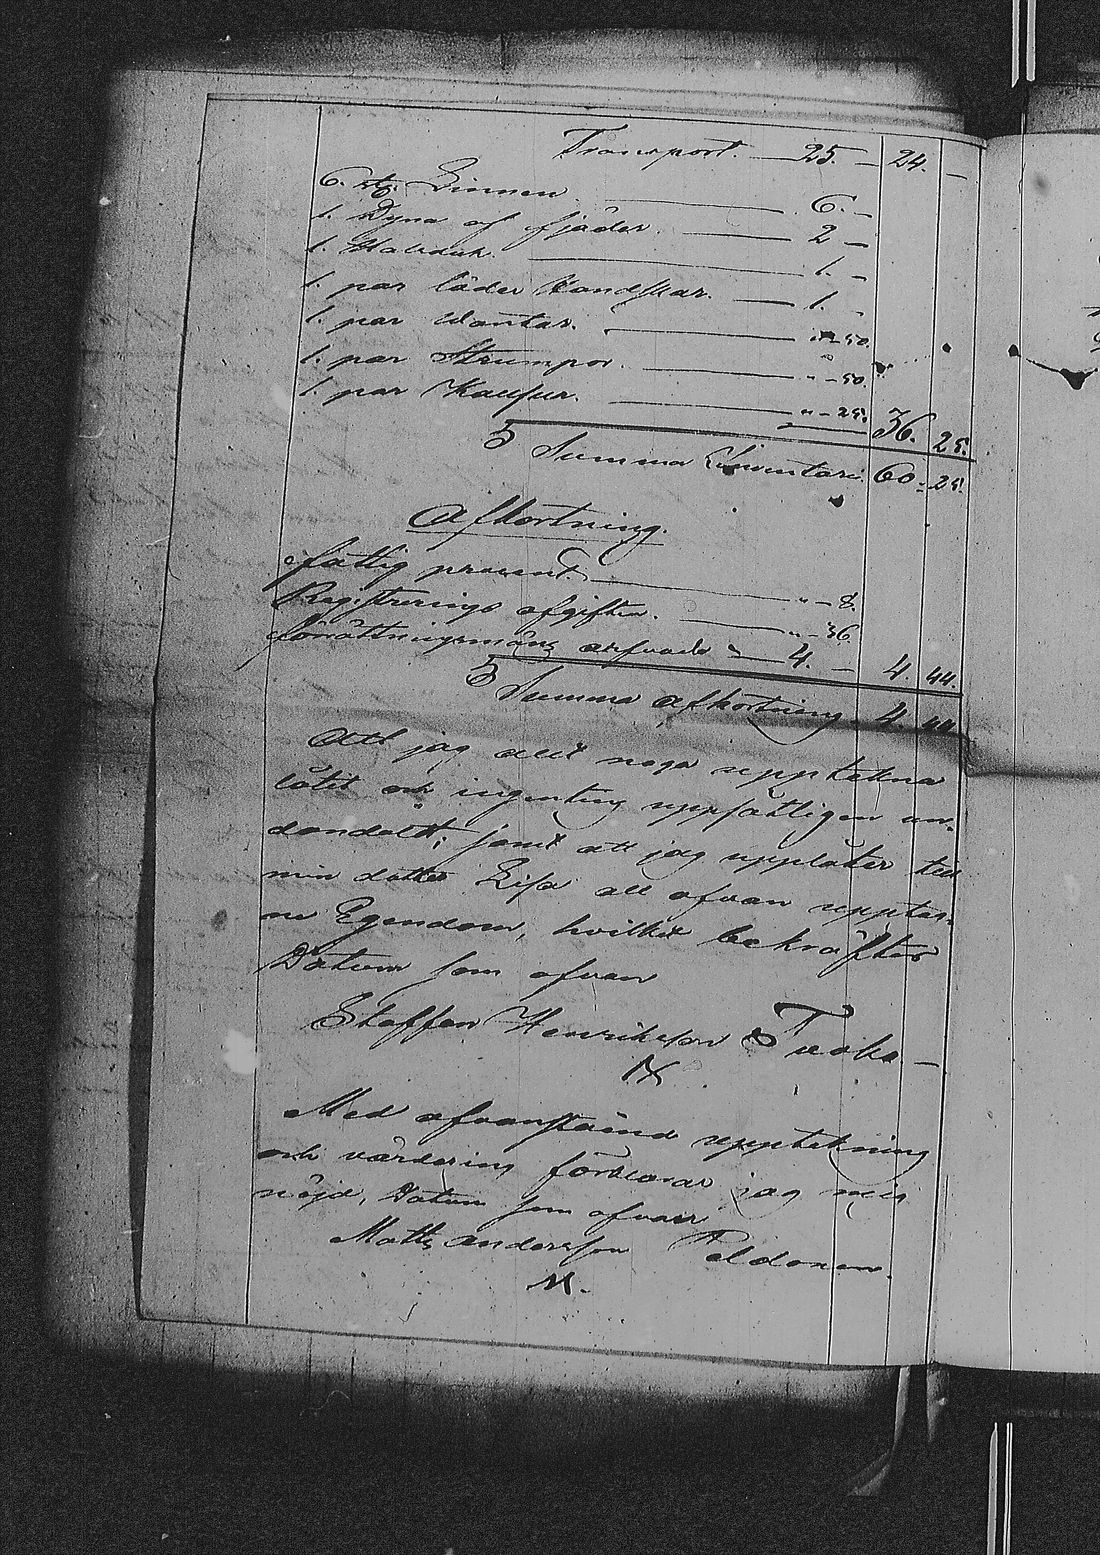 Transport. — 25. — 24. —
6. st. Linnen — 6. —
1. Dyna af fjäder — 2 —
1. Halsduk. — 1. —
1. par läder Handskar. — 1. —
1. par Wantar. — " — 50.
1. par Strumpor. — " — 50.
1. par — " — 25. 36. 25.
Summa Inventari 60. 25.
Afkortning.
fattig procent. — " — 8.
Registrerings afgiften. — " — 36
förrättningsmäns arfvode — 4. — 4. 44.
Summa Afkortning 4. 44.
Att jag allt noga upptekna
låtit och ingenting uppsåtligen un-
dandolt; samt att jag upplåter till
min dotter Lisa all ofvan uppteк-
ne Egendom, hvilket bekräftes
Datum som ofvan
Staffan Henriksson
Med ofvanstående upptekning
och värdering förklarar jag mig
nöjd, Datum som ofvan
Matts Andersson Peldonen.